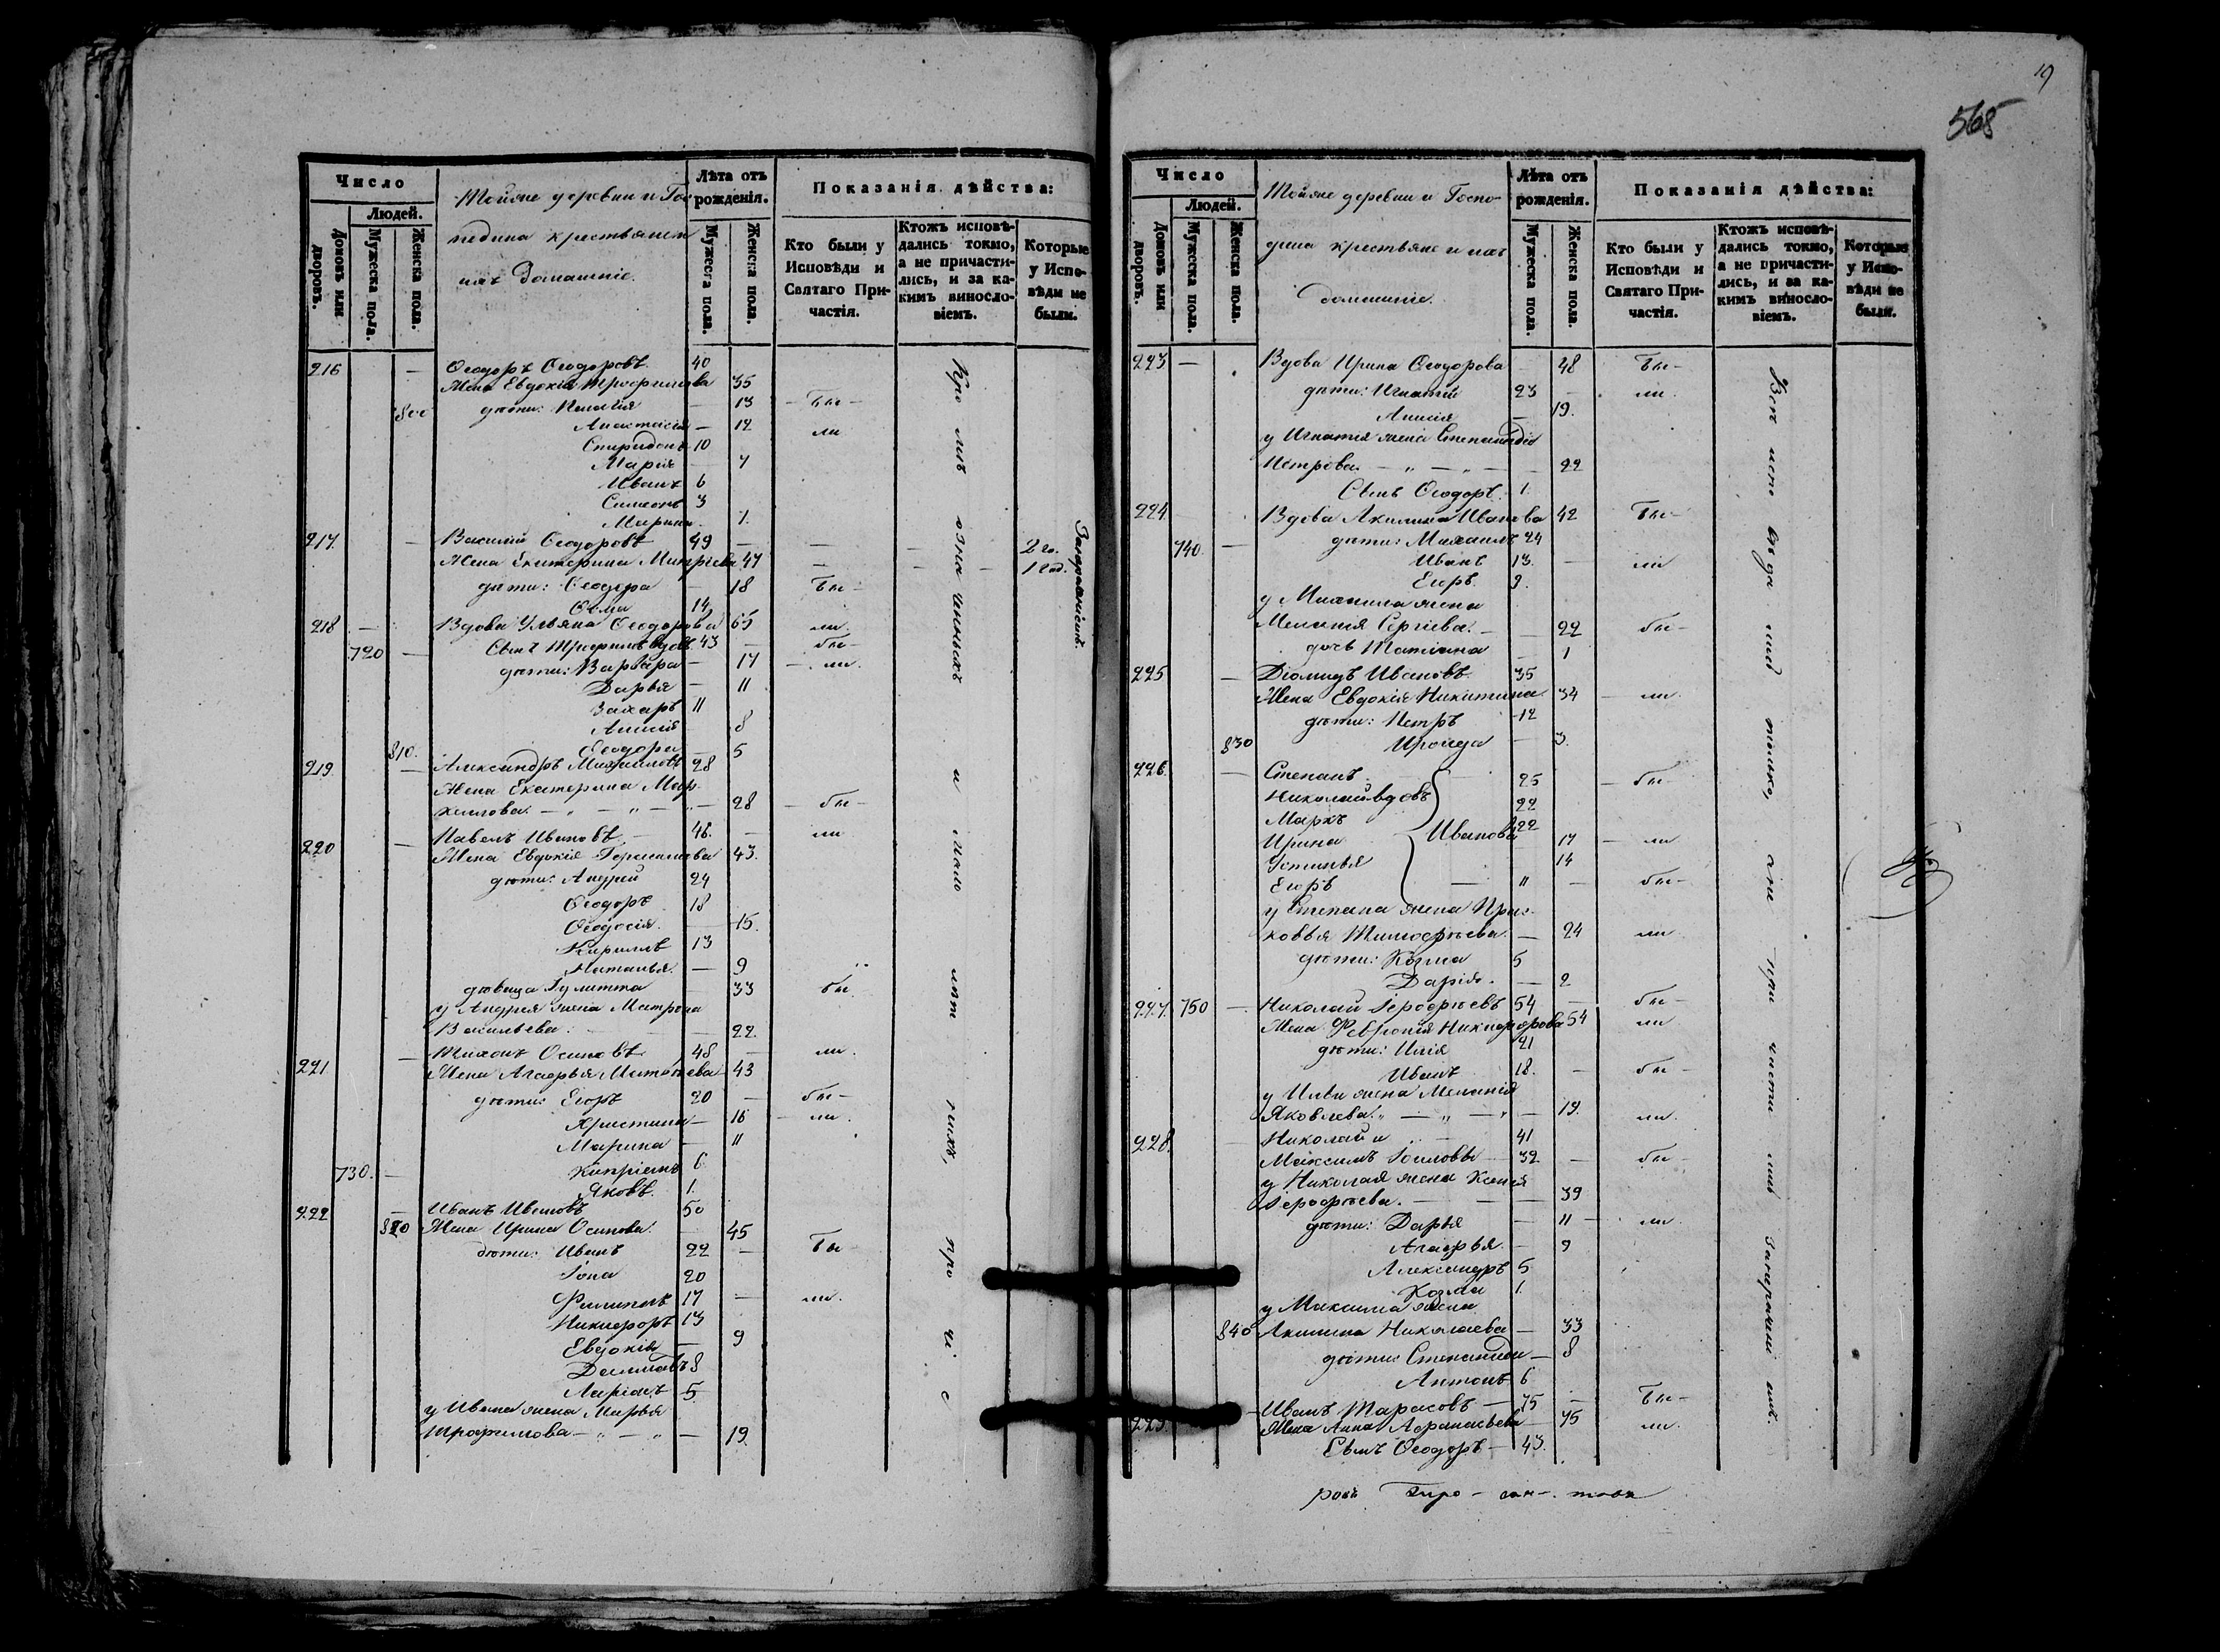 Число
Людей.
Домовъ или дворовъ.
Мужеска пола.
Женска пола.
Тойже деревни и Гос
крестьяне и
ихъ домашніе.
Лѣта отъ рожденія.
Мужеска пола.
Женска пола.
Показанія дѣйства:
Кто были у Исповѣди и Святаго Причастія.
Ктожъ исповѣдались токмо, а не причастились, и за какимъ винословіемъ.
Которые у Исповѣди не были.
216 — Ѳеодоръ Ѳеодоровъ 40
Жена Евдокія Трофимова 35
800 дѣти: Пелагія — 13 — бы —
Анастасія — 12 ли
Спиридонъ 10
Марія — 7
Иванъ 6
Симеонъ 3
Марина 1.
217. — Василій Ѳеодоровъ 49 — — — 2 го.
Жена Екатерина Дмитріева 47 — — 1 год.
дѣти: Ѳеодора — 18 бы —
Ѳома 14
218 — Вдова Ульяна Ѳеодорова 65 ли.
720 — Сынъ Трофимъ вдовъ 43 — бы —
дѣти: Варвара — 17 — ли.
Дарья — 11
Захаръ 11
Анисія 8
810. Ѳеодора — 5
219 — Александръ Михайловъ 28
Жена Екатерина Мар-
келлова — „ — „ — 28 — бы —
220 — Павелъ Ивановъ — 46. — ли
Жена Евдокія Герасимова 43.
дѣти: Андрей 24
Ѳеодоръ 18
Ѳеодосія. — 15.
Кириллъ 13
Наталья. — 9
дѣвица Гулитта 33 бы.
у Андрея жена Матрона
Васильева. — 22.
221 — Тихонъ Осиповъ 48 — ли.
Жена Агафья Матвѣева 43
дѣти: Егоръ 20 — бы —
Христина — 16 — ли.
Марина — 11
730. — Кипріянъ 6
Яковъ. 1.
222 — Иванъ Ивановъ 50
820 Жена Ирина Осипова. 45
дѣти: Иванъ 22 — бы
Іона 20
Филиппъ 17 — ли.
Никифоръ 13
Евдокія — 9
8
Ларіонъ 5
у Ивана жена Марья
Трофимова — „ — „ — 19.
19
565
Число
Людей.
Домовъ или дворовъ.
Мужеска пола.
Женска пола.
Тойже деревни и Госпо-
дина крестьяне и ихъ
домашніе.
Лѣта отъ рожденія.
Мужеска пола.
Женска пола.
Показанія дѣйства:
Кто были у Исповѣди и Святаго Причастія.
Ктожъ исповѣдались токмо, а не причастились, и за какимъ винословіемъ.
Которые у Исповѣди не были.
223 — Вдова Ирина Ѳеодорова — 48 бы —
дѣти: Игнатій 23 — ли.
Анисія — 19.
у Игнатія жена Степанида
Петрова. — „ — „ — 22
Сынъ Ѳеодоръ. 1.
224 Вдова Акилина Иванова 42 бы —
740. — дѣти: Михаилъ 24
Иванъ 13. — ли
Егоръ. 9.
у Михаила жена
Меланія Сергіева. — 22 бы —
дочь Татіана — 1
225 — Діомидъ Ивановъ 35
Жена Евдокія Никитина 34 — ли.
дѣти: Петръ 12
830 Ироида — 3.
226. — Степанъ 25 — бы —
Николай вдовъ 22
Маркъ 22
Ирина Ивановы 17 — ли
Устинья 14
Егоръ — 11 — бы —
у Степана жена Прас-
ковья Тимофѣева. — 24 ли.
дѣти: Козма 5
Дарія. — 2
227. 750 — Николай Іерофѣевъ 54 — бы —
Жена Февронія Никифорова 54 ли
дѣти: Илія 21
Иванъ 18. — бы —
у Ильи жена Меланія
Яковлева. „ — „ — 19. ли.
228. Николай и 41
Максимъ 39 — бы —
у Николая жена Ксенія
Іерофѣева. — — 39
дѣти: Дарья — 11 — ли.
Агафья. — 9
Александръ 5
Козма 1.
у Максима жена
840 Акилина Николаева — 33
дѣти: Степанида — 8
Антонъ 6
229. — Иванъ Тарасовъ — 75 — бы —
Жена Анна Афанасьева — 75 ли.
Сынъ Ѳеодоръ — 43.